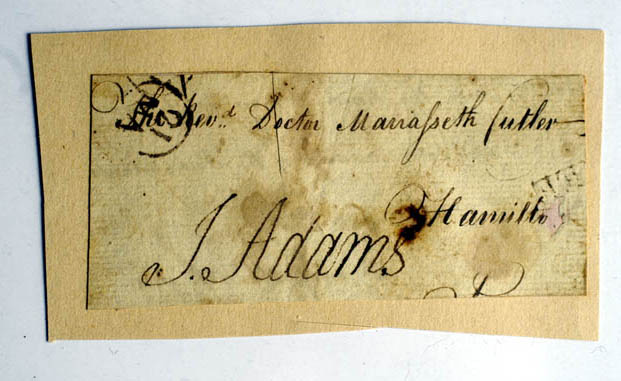 The Revd. Doctor Manasseth Cutler
Hamilto
J. Adams